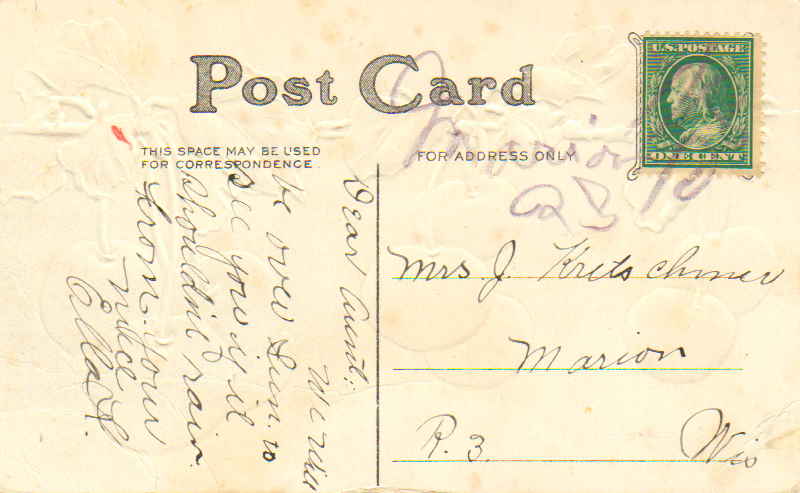 POST CARD
U.S. POSTAGE
ONE CENT
THIS SPACE MAY BE USED
FOR CORRESPONDENCE.
FOR ADDRESS ONLY
Marion
Dear Aunt:
We will
be over Sun. to
see you if it
shouldn't rain
from your
niece
Ella
Mrs J. Kretschmer
Marion
R. 3. Wis